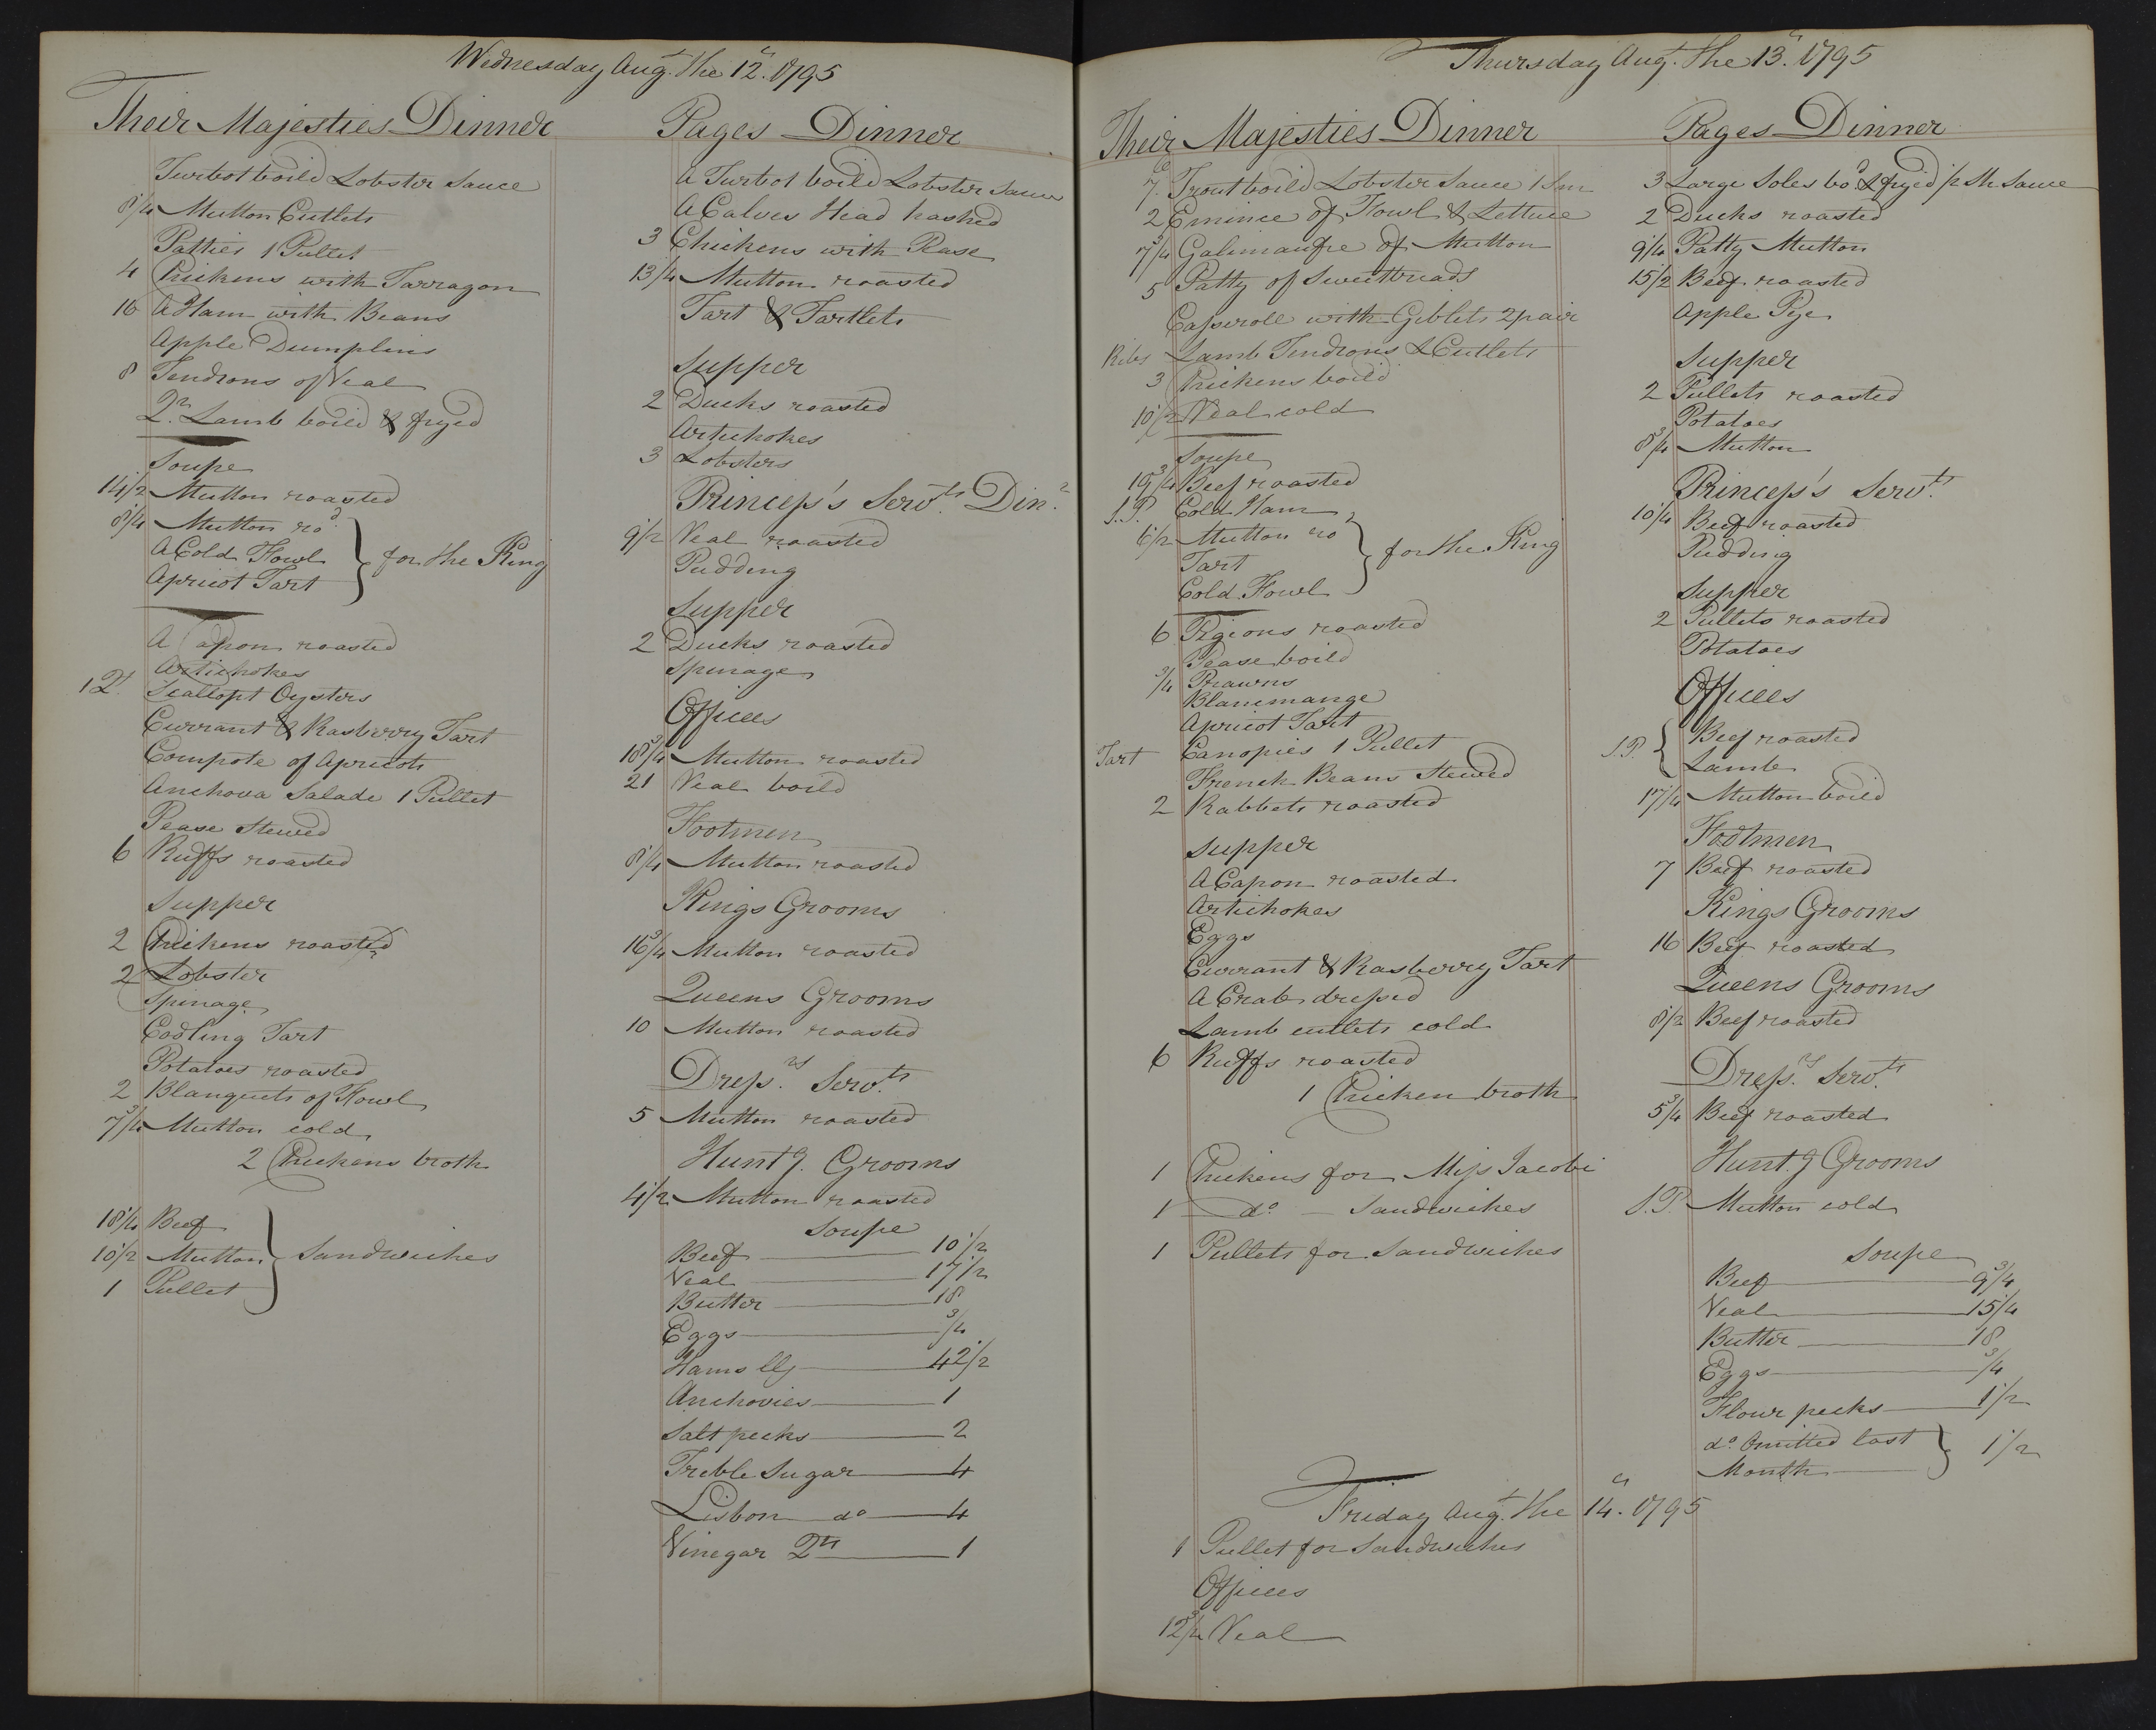 Wednesday Augt. the 12th. 1795
Their Majesties Dinner
Turbot boild Lobster Sauce
8 1/4 Mutton Cutlets
Patties 1 Pullet
4 Chickens with Tarragon
16 A Ham with Beans
Apple Dumplins
8 Tendrons of Veal
Qr. Lamb boild & fryed
Soupe
14 1/2 Mutton roasted
8 1/4 Mutton rod.
A Cold Fowl } for the King
Apricot Tart
A Capon roasted
Artichokes
1 Qt. Scallopt Oysters
Currant & Rasberry Tart
Compote of Apricots
Anchova Salade 1 Pullet
Pease Stewed
6 Ruffs roasted
Supper
2 Chickens roasted
2 Lobster
Spinage
Codling Tart
Potatoes roasted
2 Blanquets of Fowl
7 3/4 Mutton cold
2 Chickens broth
18 1/4 Beef
10 1/2 Mutton } Sandwiches
1 Pullet
Pages Dinner
A Turbot boild Lobster Sauce
A Calves Head hashed
3 Chickens with Pease
13 1/4 Mutton roasted
Tart & Tartlets
Supper
2 Ducks roasted
Artichokes
3 Lobsters
Princess's Servts. Dinr.
9 1/2 Veal roasted
Pudding
Supper
2 Ducks roasted
Spinage
Offices
18 3/4 Mutton roasted
21 Veal boild
Footmen
8 1/4 Mutton roasted
Kings Grooms
16 3/4 Mutton roasted
Queens Grooms
10 Mutton roasted
Dressrs. Servts.
5 Mutton roasted
Huntg. Grooms
4 1/2 Mutton roasted
Soupe
Beef 10 1/2
Veal 17 1/2
Butter 18
Eggs 3/4
Hams lb 42 1/2
Anchovies 1
Salt pecks 2
Treble Sugar 4
Lisbon do 4
Vinegar Qts 1
Thursday Augt. the 13th. 1795
Their Majesties Dinner
7 Trout boild Lobster Sauce 1 Sm
2 Emince of Fowl & Lettuce
7 3/4 Galimaufre of Mutton
5 Patty of Sweetbreads
Casseroll with Giblets 2 pair
Ribs Lamb Tendrons & Cutlets
3 Chickens boild
10 1/2 Veal cold
Soupe
19 3/4 Beef roasted
S.P. Cold Ham
6 1/2 Mutton ro
Tart } for the King
Cold Fowl
6 Pigeons roasted
Pease boild
3/4 Prawns
Blancmange
Apricot Tart
Tart Canopies 1 Pullet
French Beans Stewed
2 Rabbets roasted
Supper
A Capon roasted
Artichokes
Eggs
Currant & Rasberry Tart
A Crab dressed
Lamb cutlets cold
6 Ruffs roasted
1 Chicken broth
1 Chickens for Miss Jacobi
1 do Sandwiches
1 Pullets for Sandwiches
Friday Augt. the 14th. 1795
1 Pullet for Sandwiches
Offices
12 3/4 Veal
Pages Dinner
3 Large Soles bod & fryed Sauce
2 Ducks roasted
9 1/4 Patty Mutton
15 1/2 Beef roasted
Apple Pye
Supper
2 Pullets roasted
Potatoes
8 3/4 Mutton
Princess's Servts.
10 1/4 Beef roasted
Pudding
Supper
2 Pullets roasted
Potatoes
Offices
S.P. { Beef roasted
Lamb
17 1/4 Mutton boild
Footmen
7 Beef roasted
Kings Grooms
16 Beef roasted
Queens Grooms
8 1/2 Beef roasted
Dressrs. Servts.
5 3/4 Beef roasted
Hunt.g Grooms
S.P. Mutton cold
Soupe
Beef 9 3/4
Veal 15 1/4
Butter 18
Eggs 3/4
Flour pecks 1 1/2
do. Omitted last } 1 1/2
Month